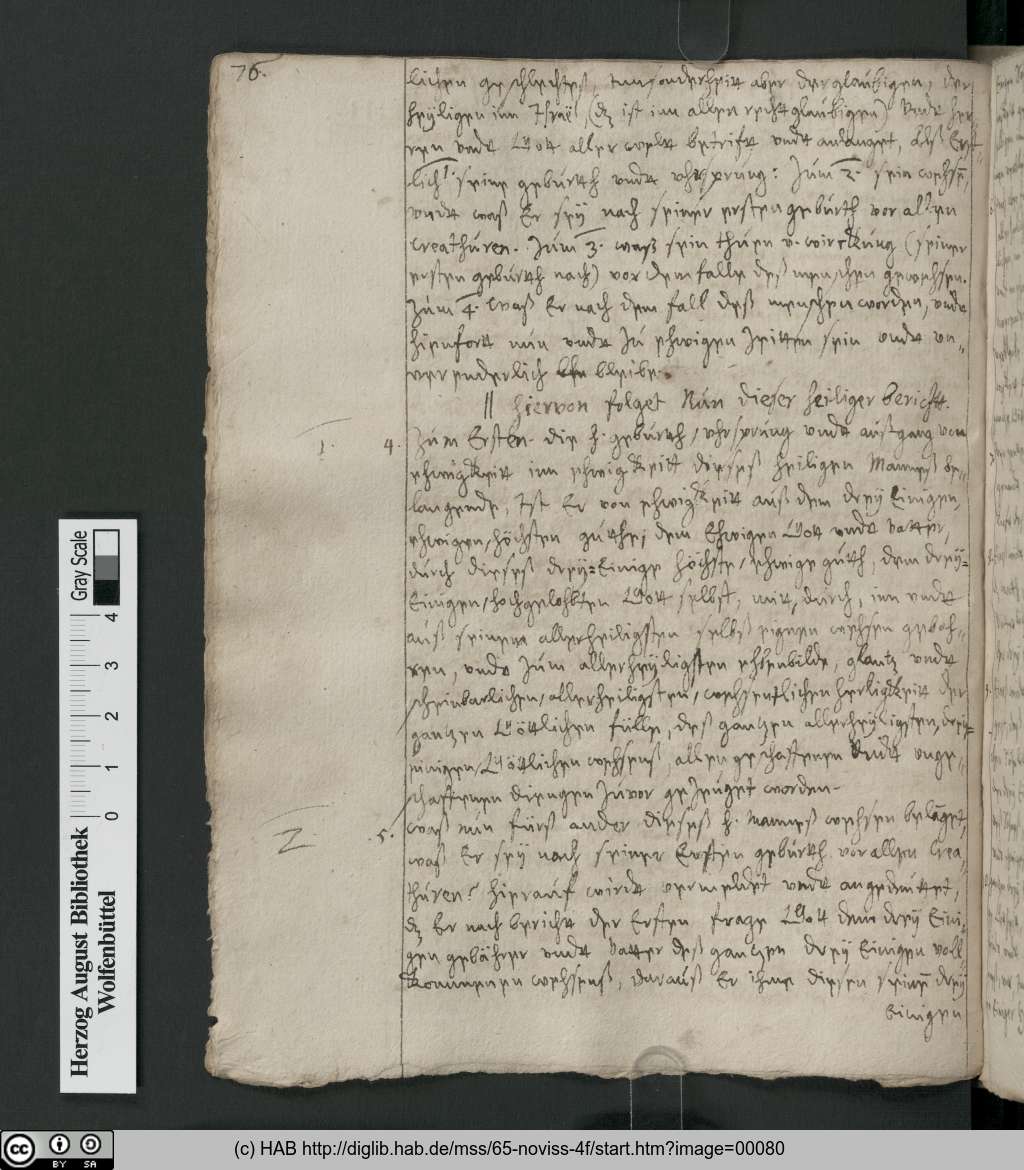 76.
lichen geschlechtß, Innsonderheitt aber der glaubigen, der
heÿligen inn Israel, (dz ist inn allen rechtglaubigen) Undt her
ren undt Gott aller weldt betrifft undt anlanget, alß Erst
lich 1. seine geburth undt uhrsprung: Zum 2. sein wehsen
undt waß Er seÿ nach seiner ersten geburth vor allen
Creathuren. Zum 3. waß sein thuen v. wirckung (seiner
ersten geburth nach) vor dem falle deß menschen gewehsen.
Zum 4. Waß Er nach dem fall deß menschen worden, undt
hienfortt nun undt zu ehwigen Zeitten sein undt un-
verenderlich bleibe.
|| Hiervon folget Nun dieser heiliger bericht.
1. 4. Zum Ersten. die h. geburth/ uhrsprung undt außgang von
ehwigkeitt inn ehwigkeitt dieseß heiligen Manneß be-
langendt, Ist Er von ehwigkeitt auß dem dreÿ Einigen,
ehwigen/ höchsten guthe, dem Ehwigen Gott undt Vatter,
durch dieseß dreÿ=Einige höchste/ ehwige guth, dem dreÿ=
Einigen/ hochgelobten Gott selbst, mit, durch, inn undt
auß seinem allerheiligsten selbß eignen wehsen geboh-
ren, undt zum allerheÿligsten ebenbilde, glantz undt
scheinbarlichen/ allerheiligsten/ wehsentlichen herligkeitt der
gantzen Göttlichen fülle, deß gantzen allerheÿligsten, dreÿ=
einigen/ Göttlichen wehsenß, allen geschaffenen Undt unge-
schaffenen dingen zuvor gezeuget worden.
2. 5. Waß nun fürß ander dieseß h. Manneß wehsen belanget,
waß Er seÿ nach seiner Ersten geburth vor allen Crea-
thuren? hierauf wirdt vermeldet undt angedeuttet,
dz Er nach bericht der Ersten frage Gott dem dreÿ Eini-
gen gebährer undt Vatter deß gantzen dreÿ Einigen voll
kommenen wehsenß, darauß Er ihme diesen seinen dreÿ
Einigen
Herzog August Bibliothek
Wolfenbüttel
0 1 2 3 4 Gray Scale
cc BY SA
(c) HAB http://diglib.hab.de/mss/65-noviss-4f/start.htm?image=00080